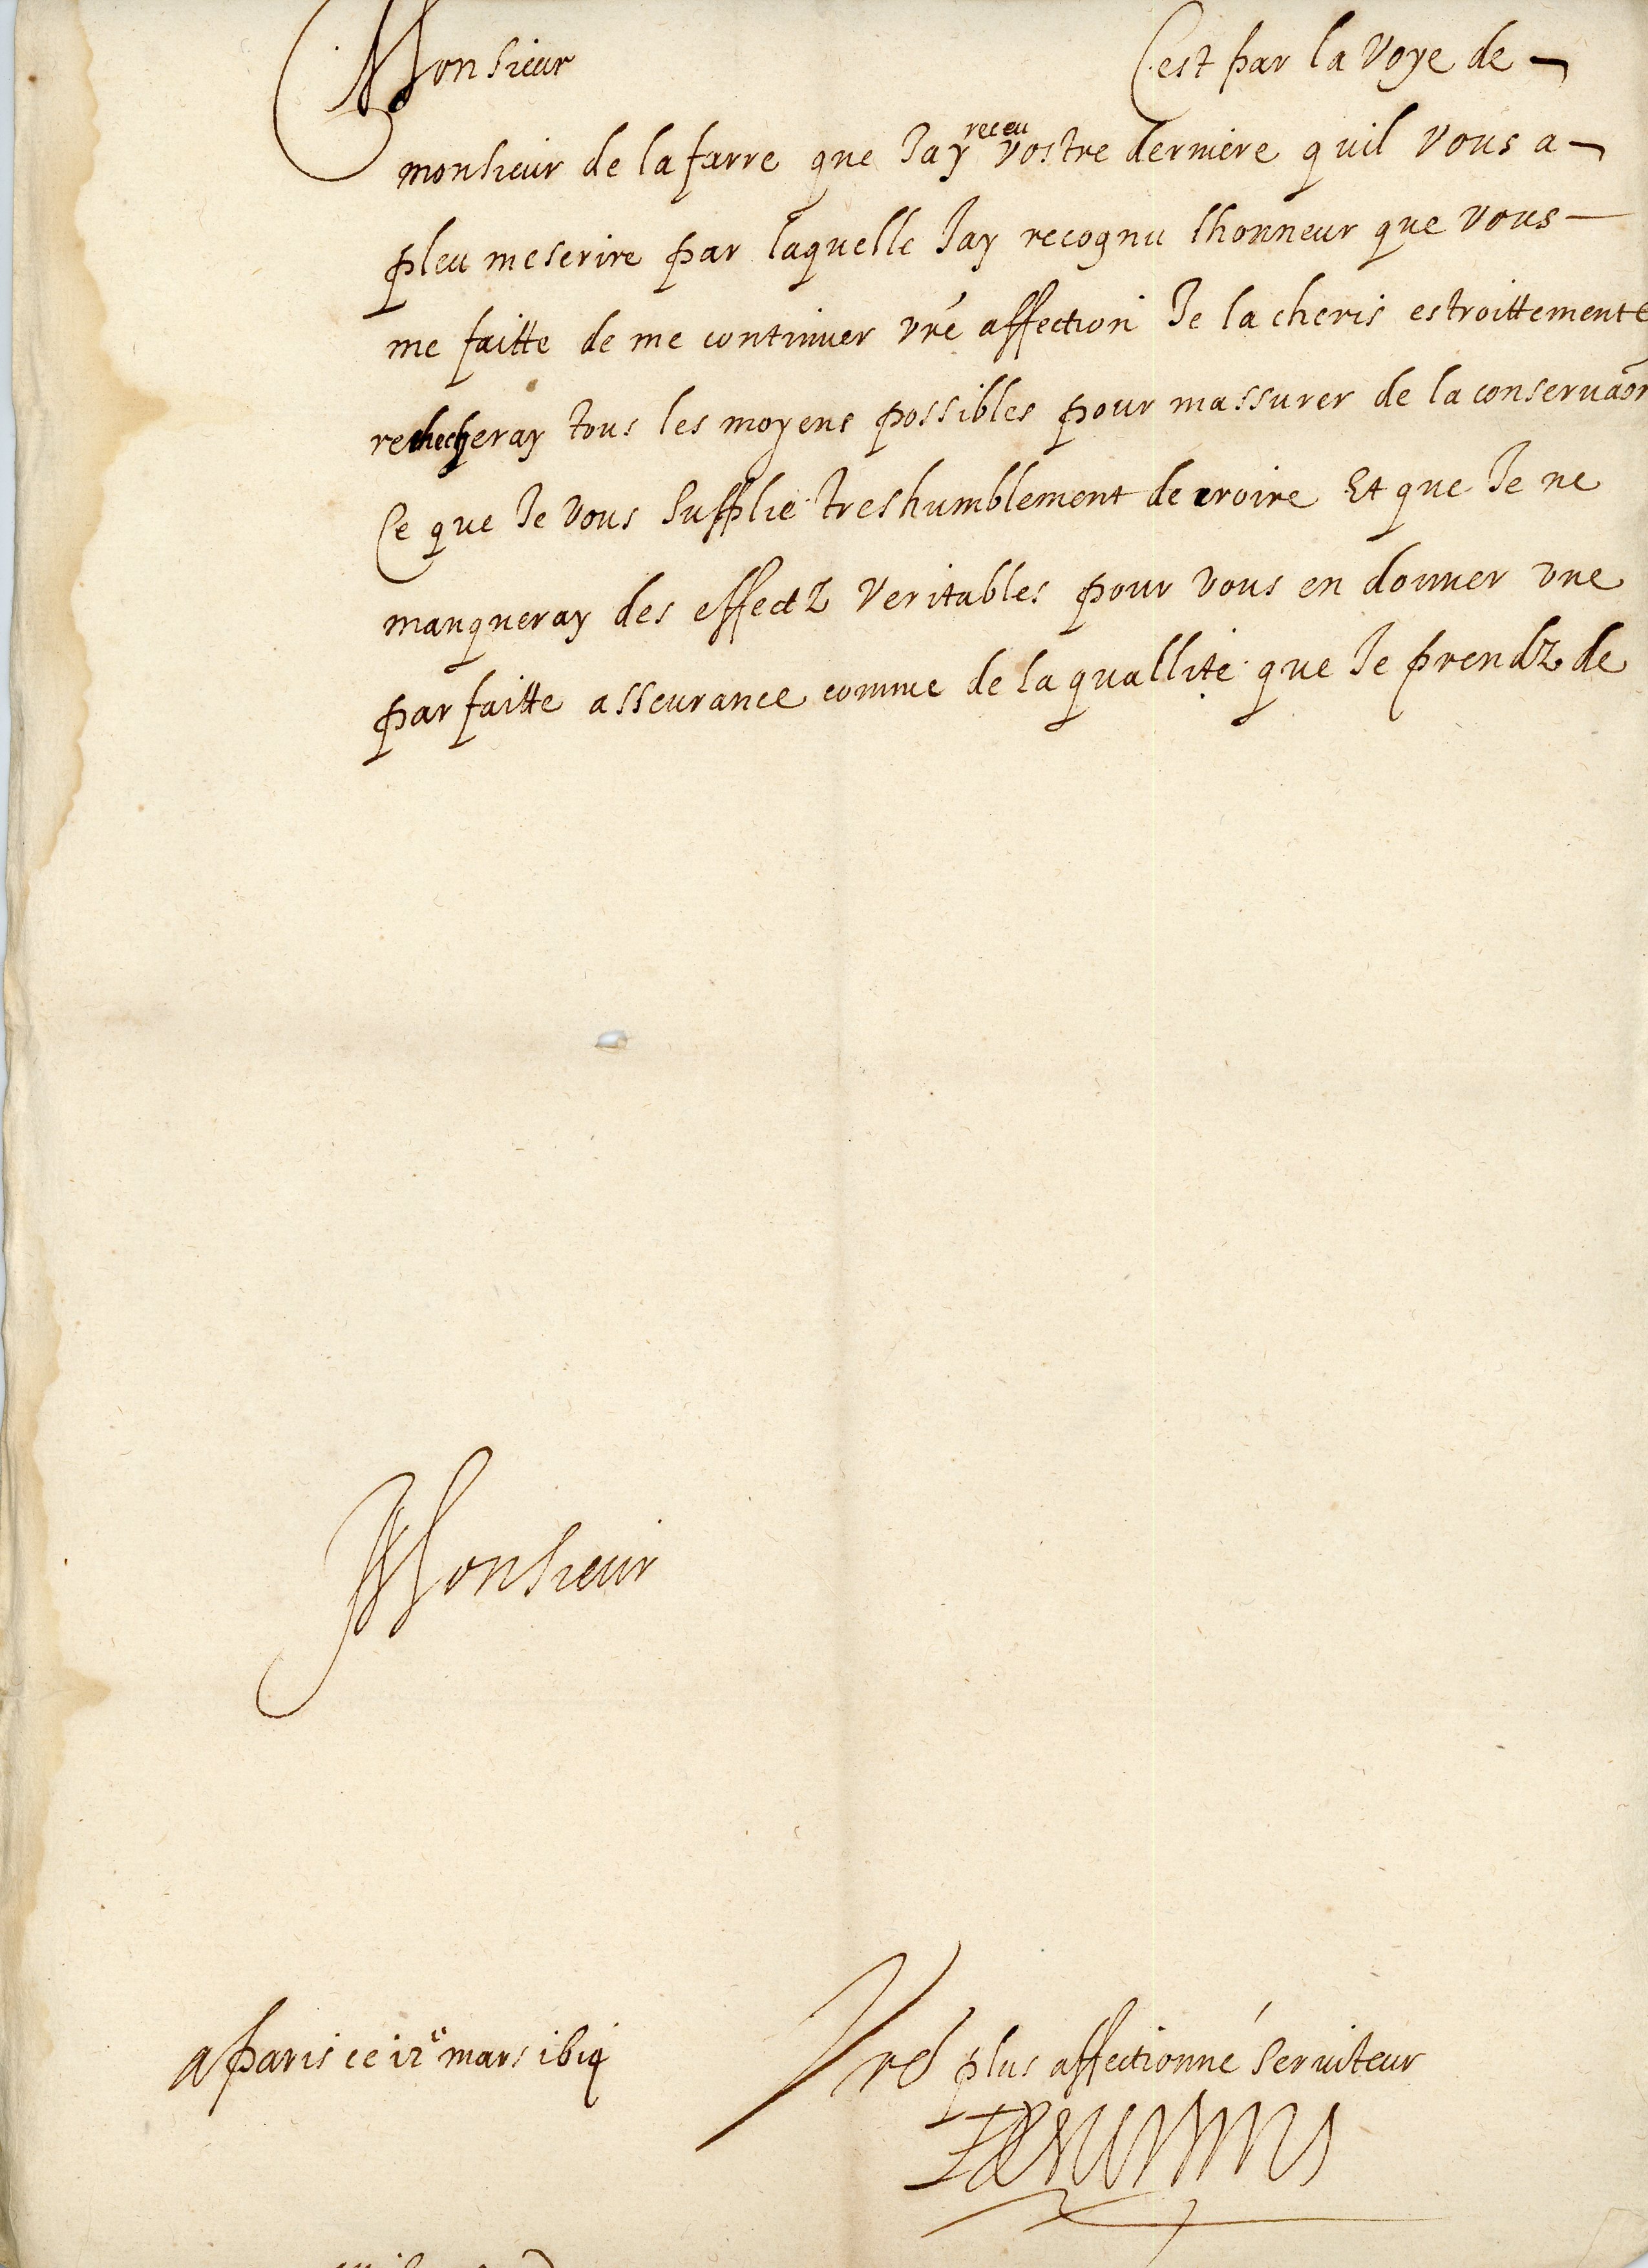 Monsieur C'est par la voye de
monsieur de la farre que Jay receu vostre derniere quil vous a
pleu mescrire par laquelle Jay recognu lhonneur que vous
me faitte de me continuer vre affection Je la cheris estroittement et
rechecheray tous les moyens possibles pour massurer de la conservaon
Ce que Je vous supplie treshumblement de croire Et que Je ne
manqueray des effectz veritables pour vous en donner une
parfaitte asseurance comme de la quallité que Je prendz de
Monsieur
Vre plus affectionné serviteur
a paris ce 12e mars